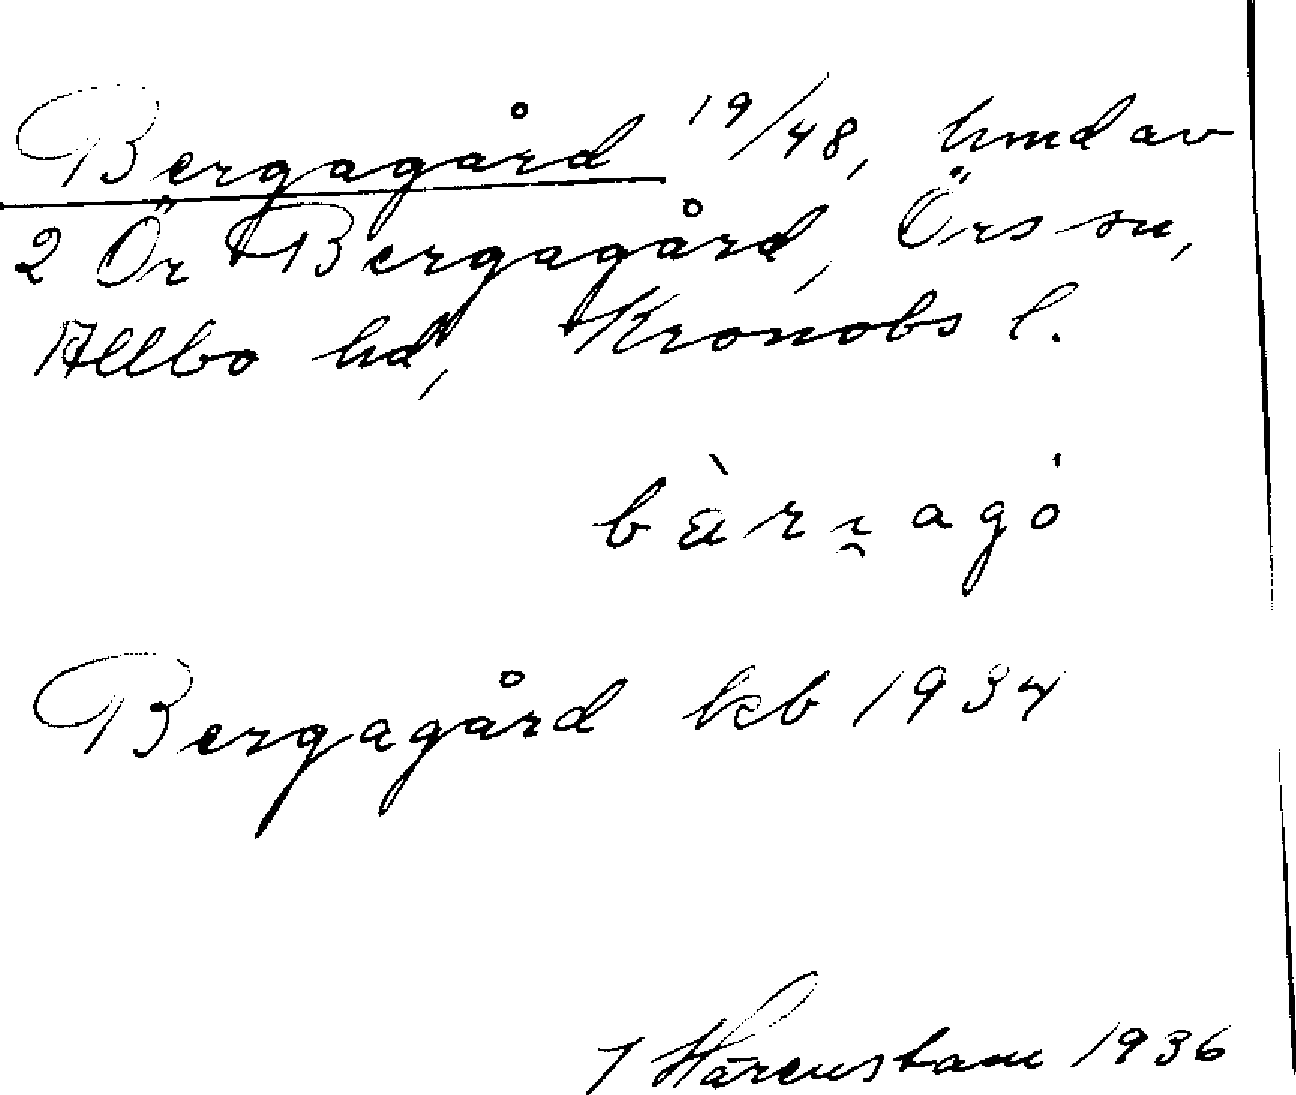 Bergagård 19/48, hmd av
2 Ör Bergagård, Örs sn,
Allbo hd, Kronobs l.
bàr̯agó
Bergagård kb 1934
Härenstam 1936